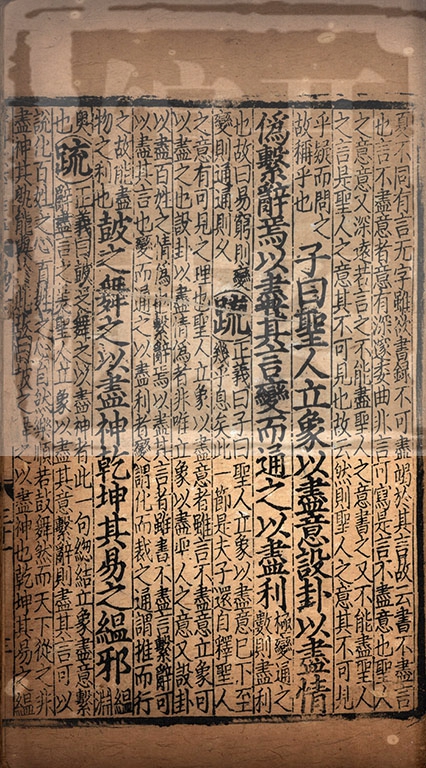 夏不同有言无字雖欲書録不可盡竭於其言故云書不盡言
也言不盡意者意有深邃委曲非言可寫是言不盡意也聖人
之意意又深遠若言之不能盡聖人之意書之又不能盡聖人
之言是聖人之意其不可見也故云然則聖人之意其不可見
乎疑而問之
故稱乎也
子曰聖人立象以盡意設卦以盡情
僞繫辭焉以盡其言變而通之以盡利
極變通之
數則盡利
也故曰易窮則變
變則通通則久
疏
正義曰子曰聖人立象以盡意已下至
幾乎息矣此一節是夫子還自釋聖人
之意有可見之理也聖人立象以盡意者雖言不盡意立象可
以盡之也設卦以盡情僞者非唯立象以盡聖人之意又設卦
以盡百姓之情僞也繫辭焉以盡其言者雖書不盡言繫辭可
以盡其言也變而通之以盡利者變謂化而裁之通謂推而行
之故能盡
物之利也
鼓之舞之以盡神乾坤其易之緼邪
緼淵
奧也
疏
正義曰鼓之舞之以盡神者此一句緫結立象盡意繫
辭盡言之美聖人立象以盡其意繫辭則盡其言可以
說化百姓之心百姓之心自然樂順若鼓舞然而天下從之非
盡神其孰能與於此故曰鼓之舞之以盡神也乾坤其易之緼